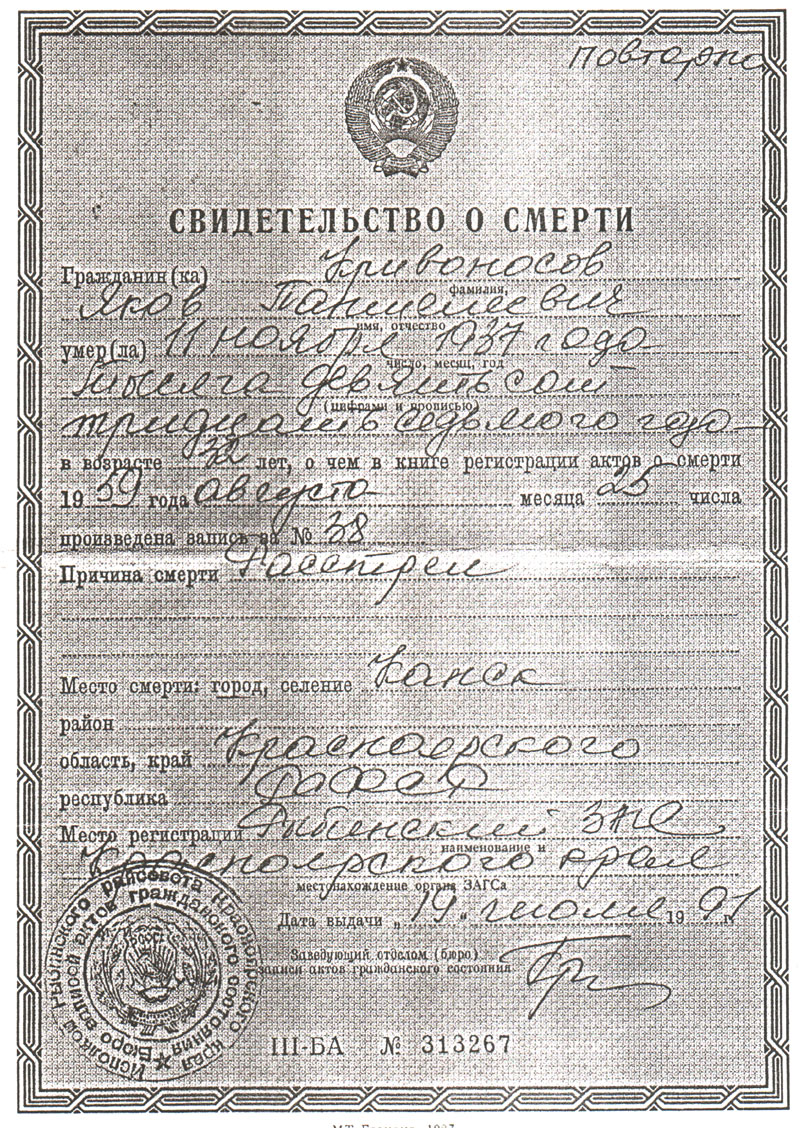 Повторно
СВИДЕТЕЛЬСТВО О СМЕРТИ
Гражданин(ка) Кривоносов
фамилия,
Яков Пантелеевич
имя, отчество
умер(ла) 11 ноября 1937 года
число, месяц, год
тысяча девятьсот
(цифрами и прописью)
тридцать седьмого года
в возрасте 32 лет, о чем в книге регистрации актов о смерти
1959 года августа месяца 25 числа
произведена запись за № 38
Причина смерти Расстрел
Место смерти: город, селение Канск
район
область, край Красноярского
республика РСФСР
Место регистрации Рыбинский ЗАГС
наименование и
Красноярского края
местонахождение органа ЗАГСа
Дата выдачи „19“ июля 1991 г.
Заведующий отделом (бюро)
записи актов гражданского состояния
III-БА № 313267
Исполком Рыбинского райсовета Красноярского края
Бюро записей актов гражданского состояния